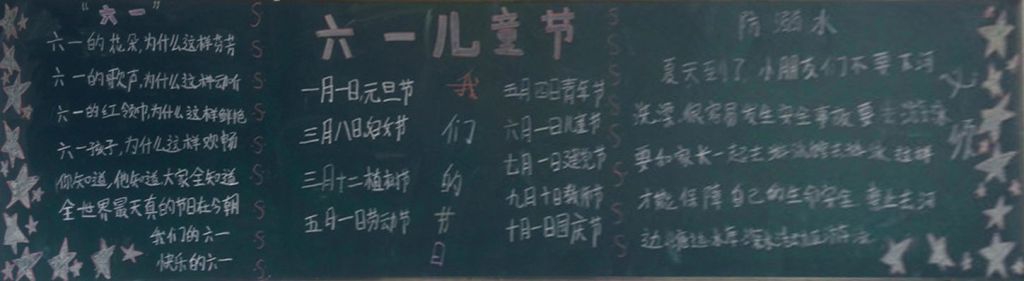 "六一"
六一的花朵,为什么这样芬芳
六一的歌声,为什么这样动听
六一的红领巾,为什么这样鲜艳
六一孩子,为什么这样欢畅
你知道,他知道大家全知道
全世界最天真的节日在今朝
我们的六一
快乐的六一
六一儿童节
一月一日,元旦节
三月八日妇女节
三月十二植树节
五月一日劳动节
我们的节日
五月四日青年节
六月一日儿童节
七月一日建党节
九月十日教师节
十月一日国庆节
防溺水
夏天到了,小朋友们不要下河
洗澡,很容易发生安全事故,要
要和家长一起去
才能保障自己的生命安全